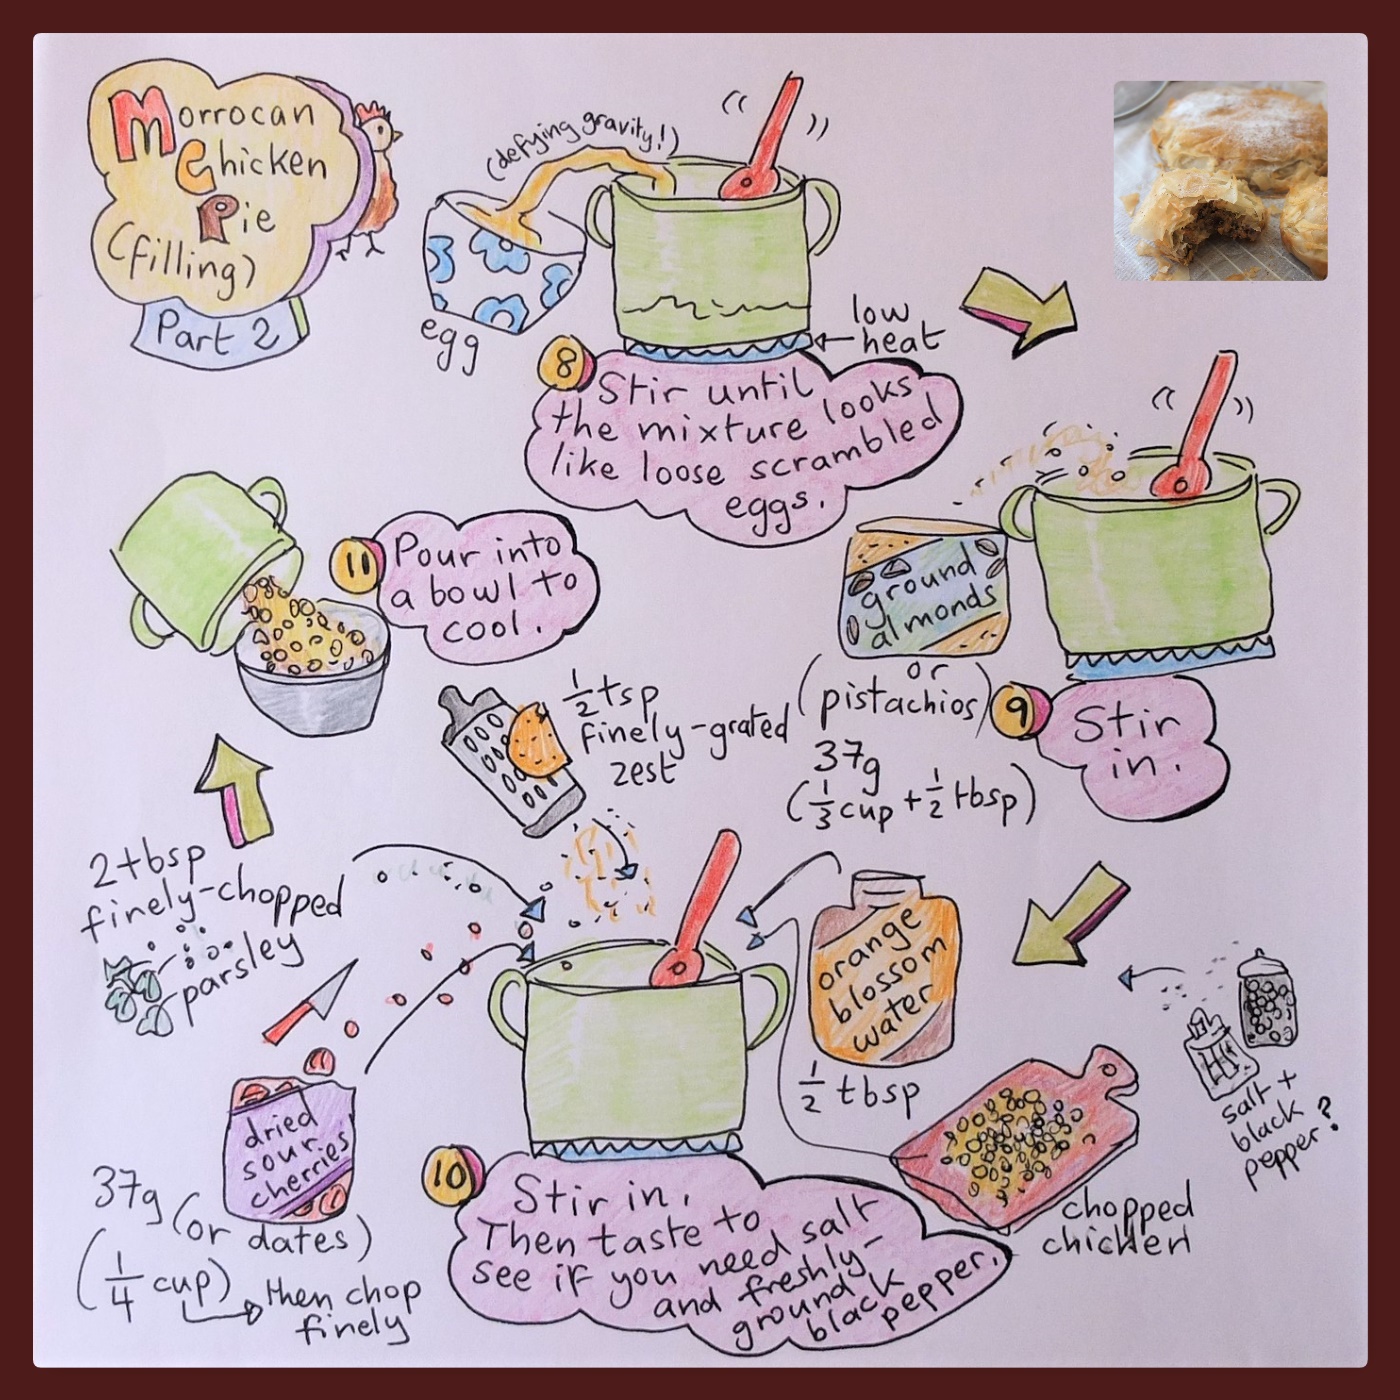 Morrocan
Chicken
Pie
(filling)
Part 2
(defying gravity!)
egg
low
heat
8
Stir until
the mixture looks
like loose scrambled
eggs.
ground
almonds
or
(pistachios)
37g
(1/3 cup + 1/2 tbsp)
9
Stir
in.
orange
blossom
water
1/2 tbsp
1/2 tsp
finely-grated
zest
2 tbsp
finely-chopped
parsley
dried
sour
cherries
37g (or dates)
(1/4 cup)
then chop
finely
chopped
chicken
salt +
black
pepper?
10
Stir in.
Then taste to
see if you need salt
and freshly-
ground
black
pepper.
11
Pour into
a bowl to
cool.